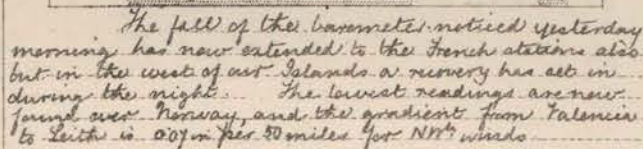 The fall of the barometer noticed yesterday
morning has now extended to the French stations also
but in the west of our Islands a recovery has set in
during the night. The lowest readings are now
found over Norway, and the gradient from Valencia
to Leith is 0.07 in per 50 miles for NWly winds